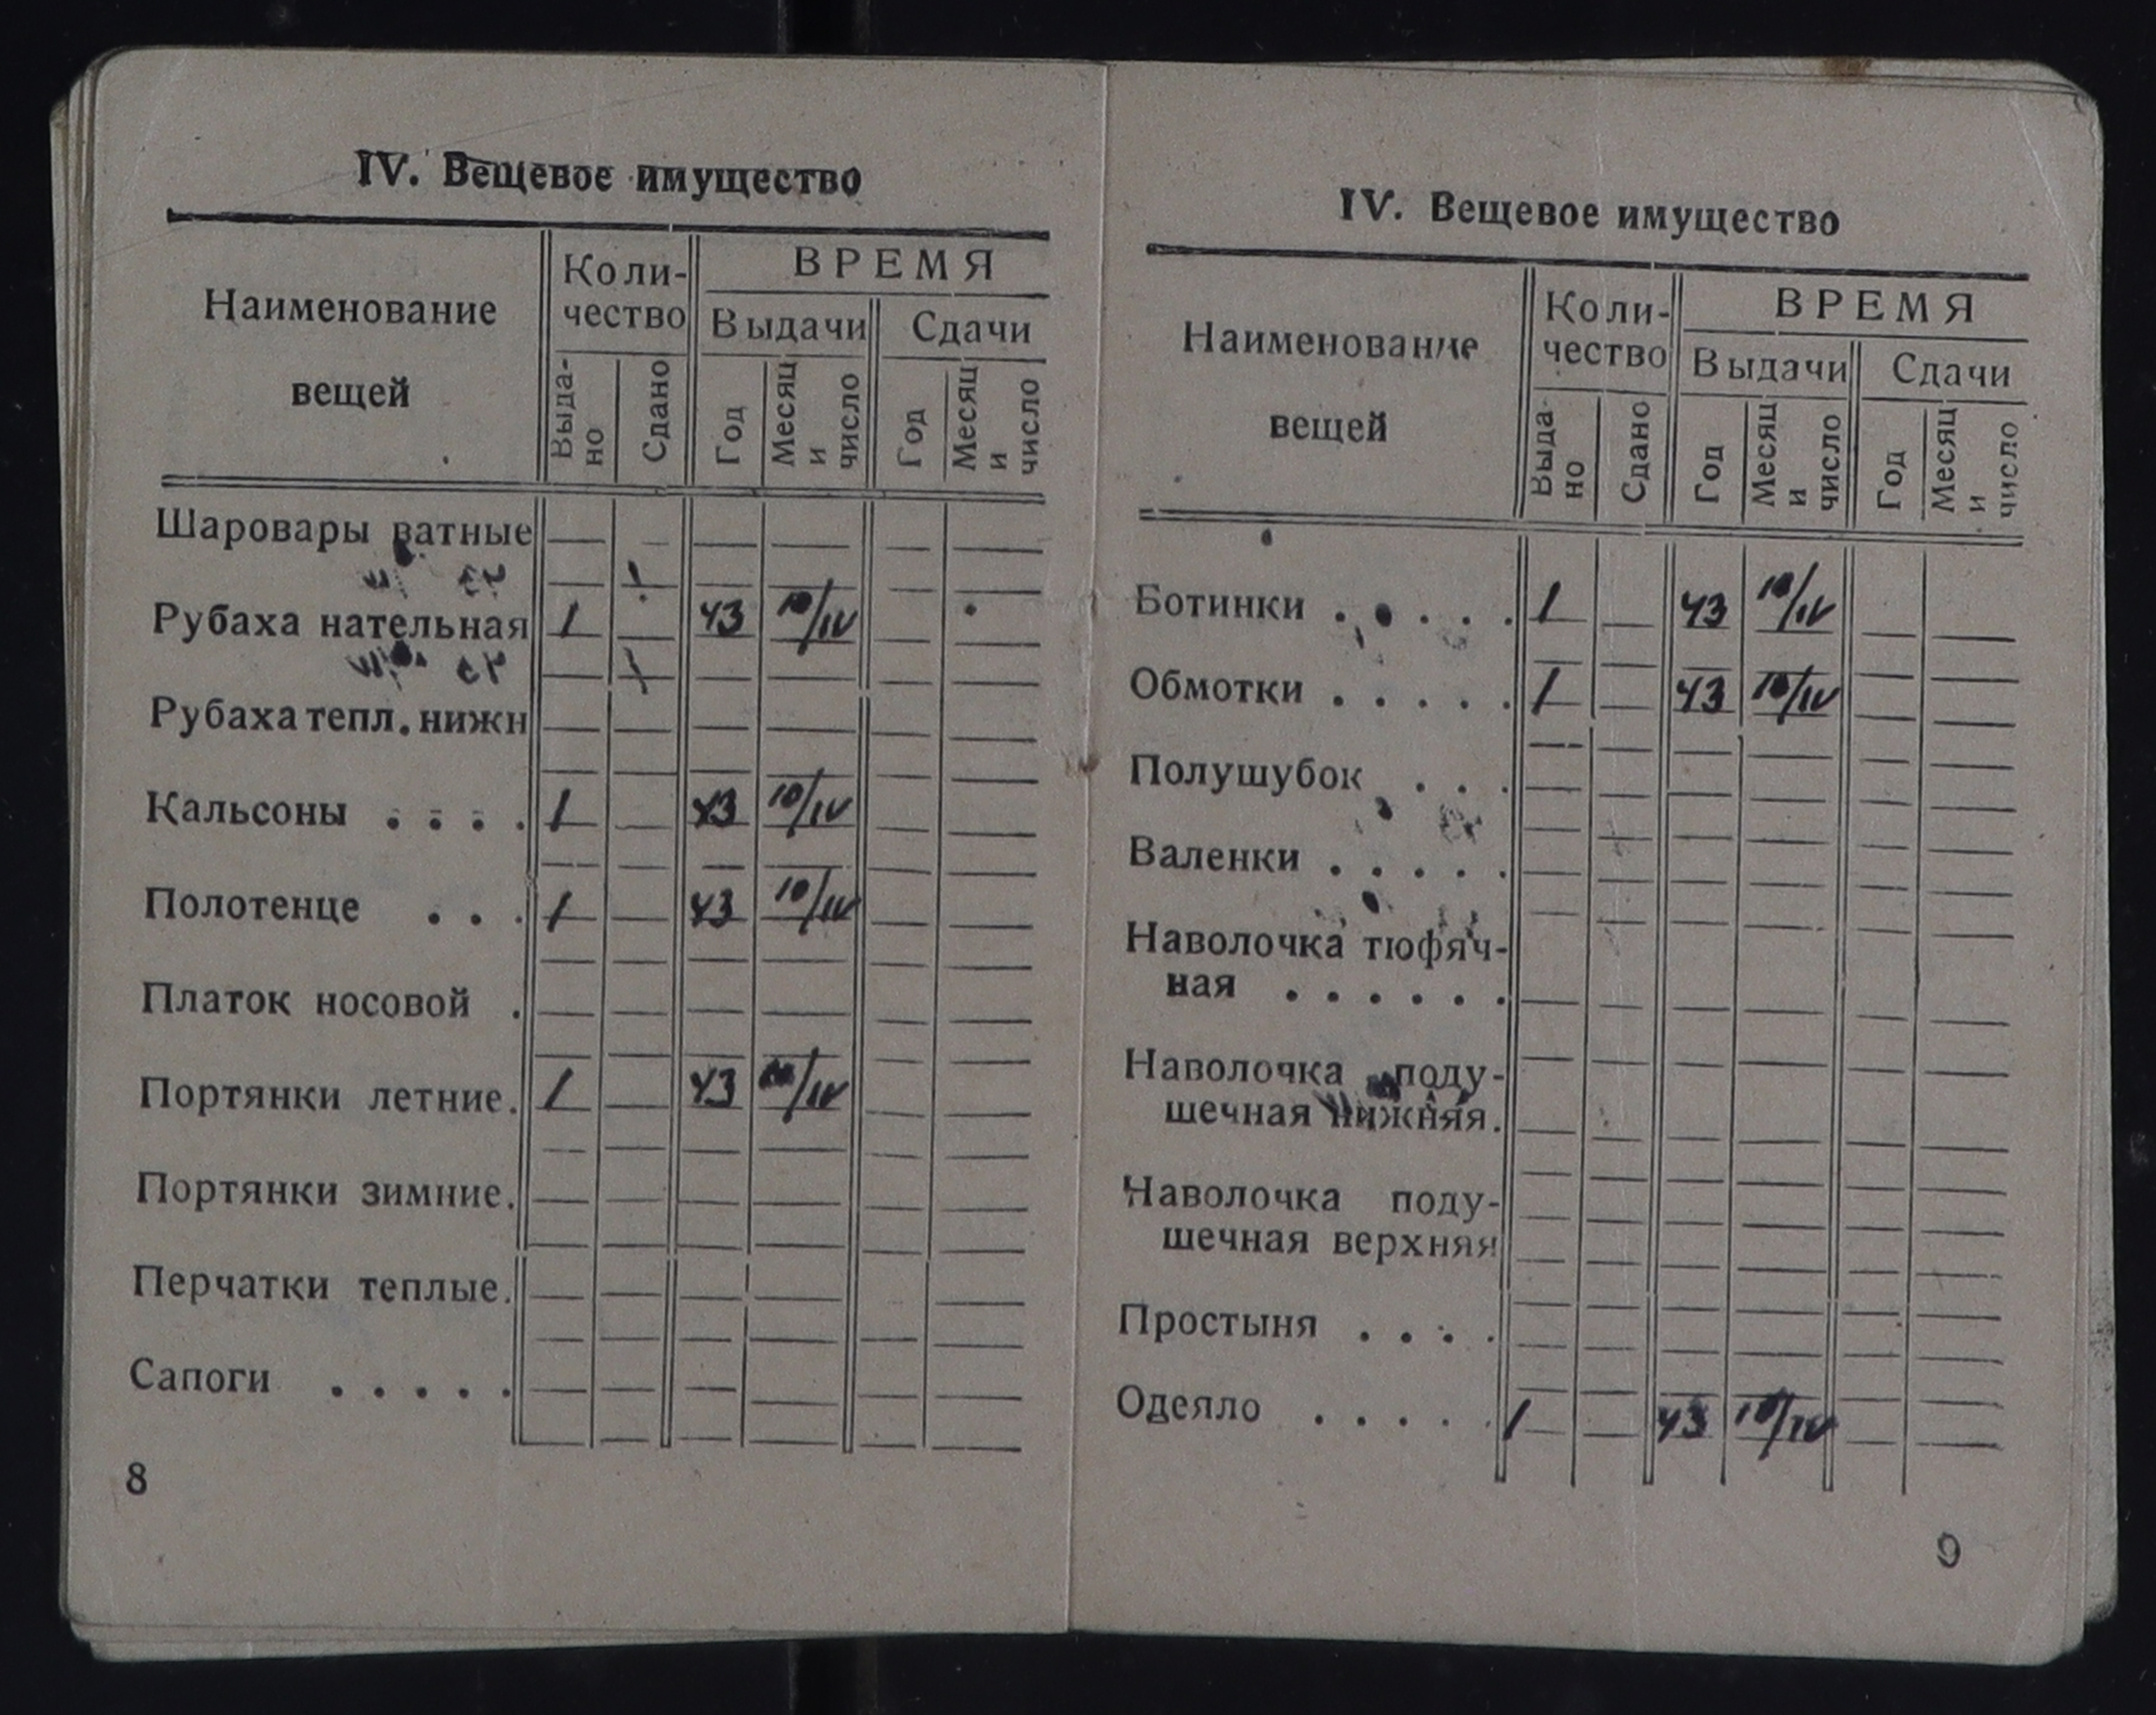 IV. Вещевое имущество
Наименование вещей
Коли-
чество
ВРЕМЯ
Выдачи
Сдачи
Выда-
но
Сдано
Год
Месяц
и
число
Год
Месяц
и
число
Шаровары ватные
Рубаха нательная 1 43 10/IV
Рубаха тепл. нижн
Кальсоны . . . . 1 43 10/IV
Полотенце . . . 1 43 10/IV
Платок носовой .
Портянки летние. 1 43 10/IV
Портянки зимние.
Перчатки теплые.
Сапоги . . . . .
8
IV. Вещевое имущество
Наименование вещей
Коли-
чество
ВРЕМЯ
Выдачи
Сдачи
Выда-
но
Сдано
Год
Месяц
и
число
Год
Месяц
и
число
Ботинки . . . . . 1 43 10/IV
Обмотки . . . . . 1 43 10/IV
Полушубок . . .
Валенки . . . . .
Наволочка тюфяч-
ная . . . . . .
Наволочка поду-
шечная нижняя.
Наволочка поду-
шечная верхняя
Простыня . . . .
Одеяло . . . . . 1 43 10/IV